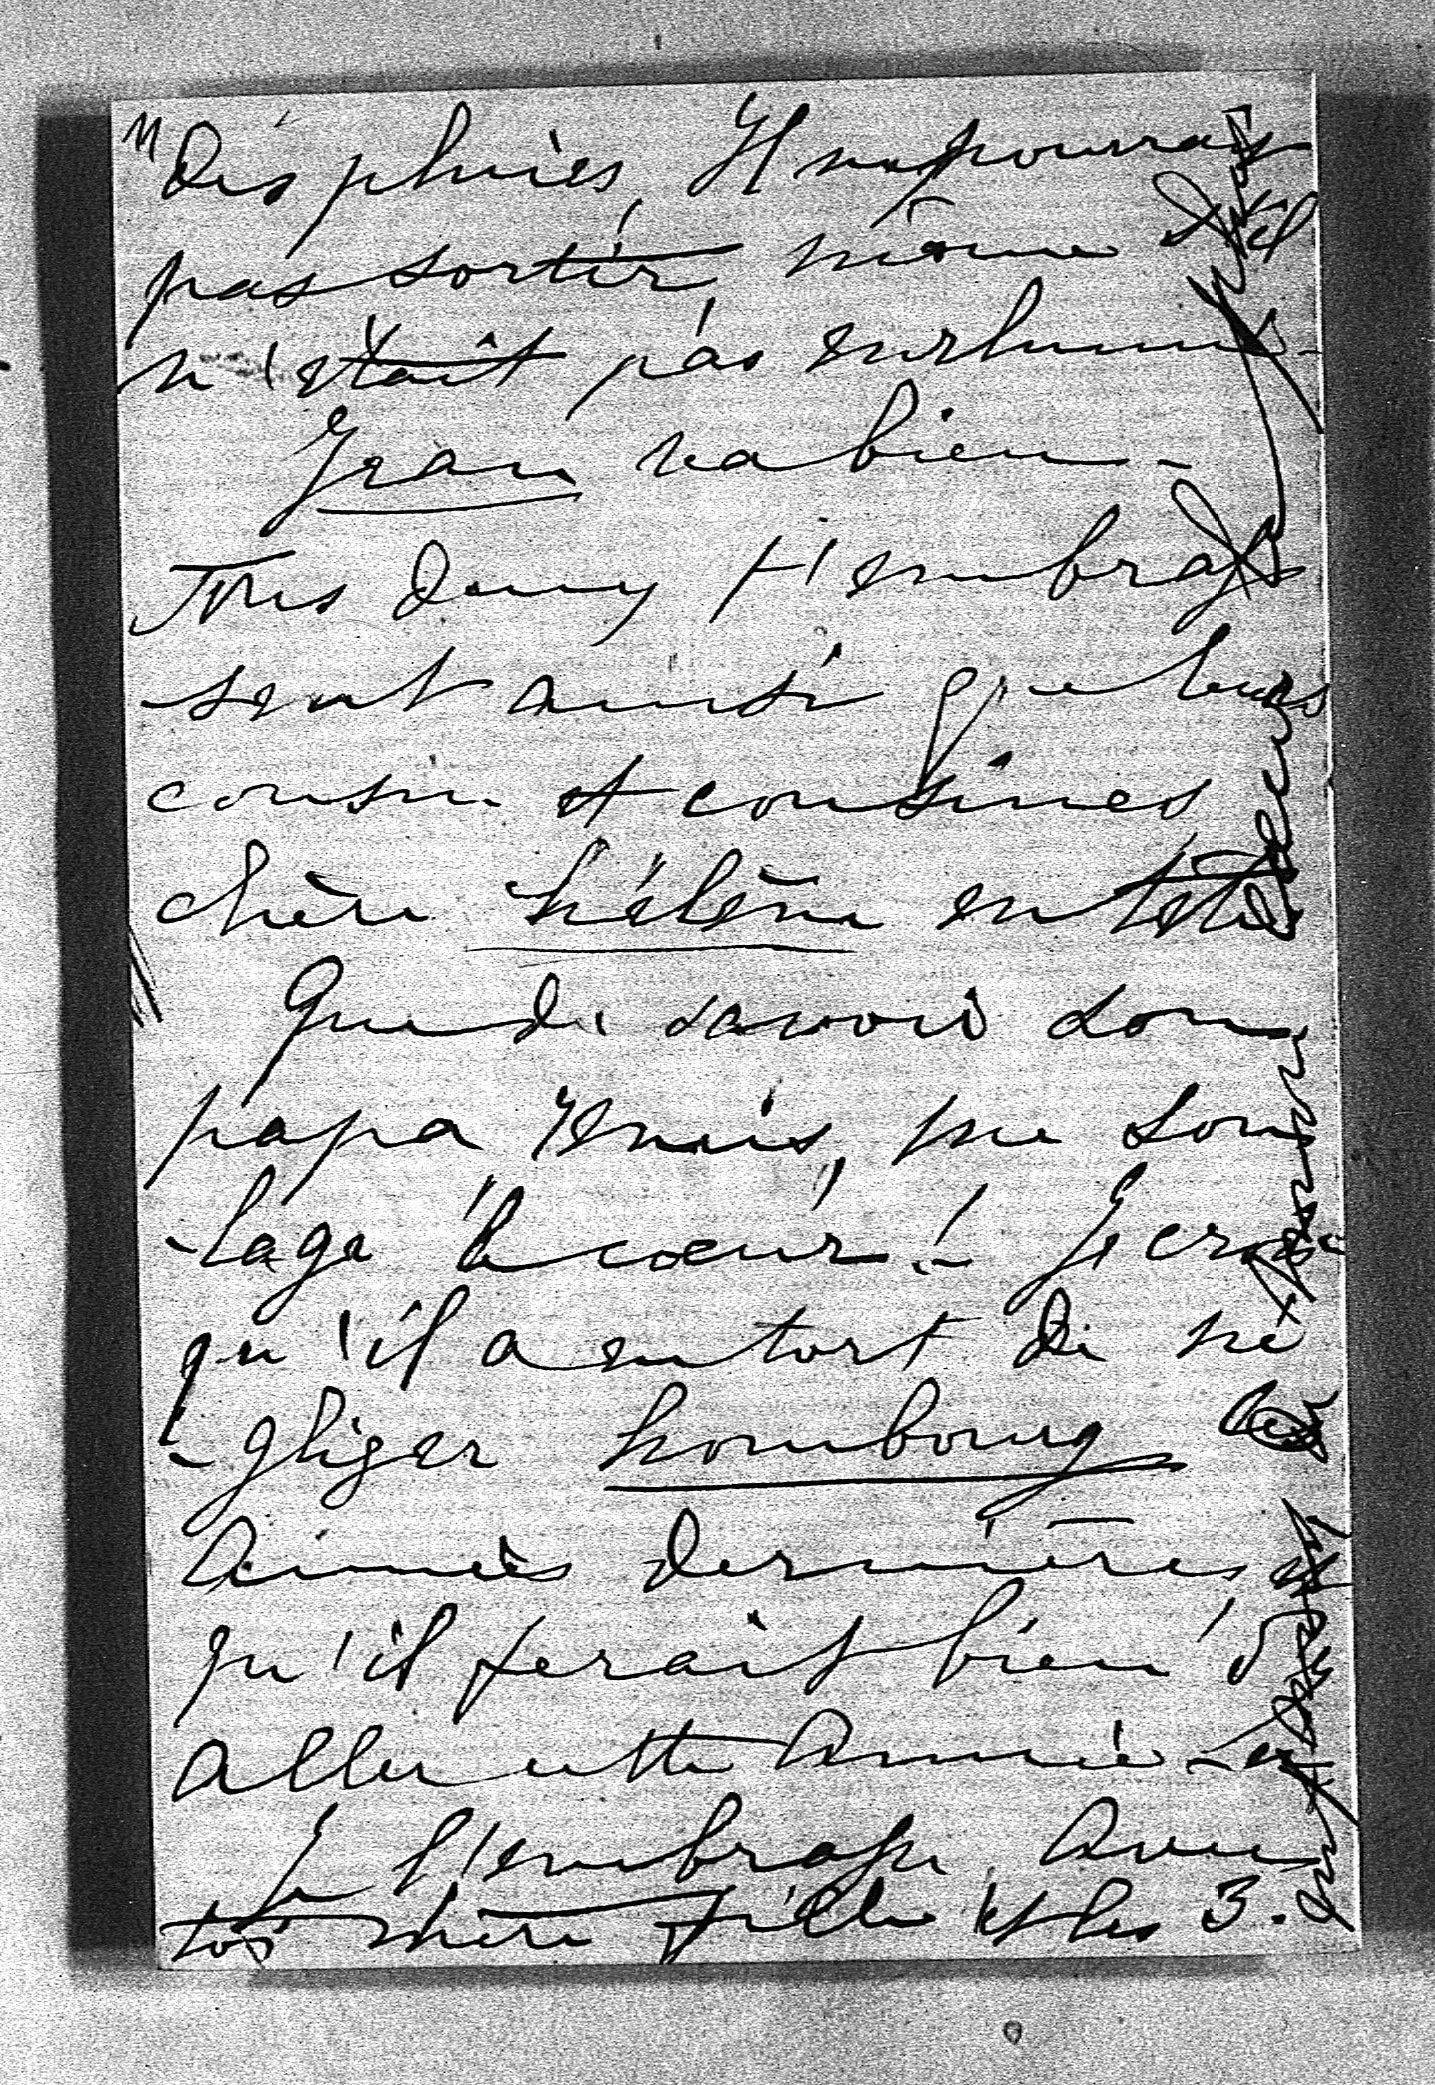 des pluies, Il ne pourrait
pas sortir, même s'il
n'était pas enrhumé.
Jean va bien.
Tous deux t'embras
sent ainsi que leurs
cousin et cousines
chère hélène en tête
Que de savoir son
papa remis, me sou
-lage le cœur! Je crois
qu'il a eu tort de né
-gliger hombourg les
années dernières, et
qu'il ferait bien d'y
aller cette année
Je t'embrasse, avec
toi chère fille et les 3.